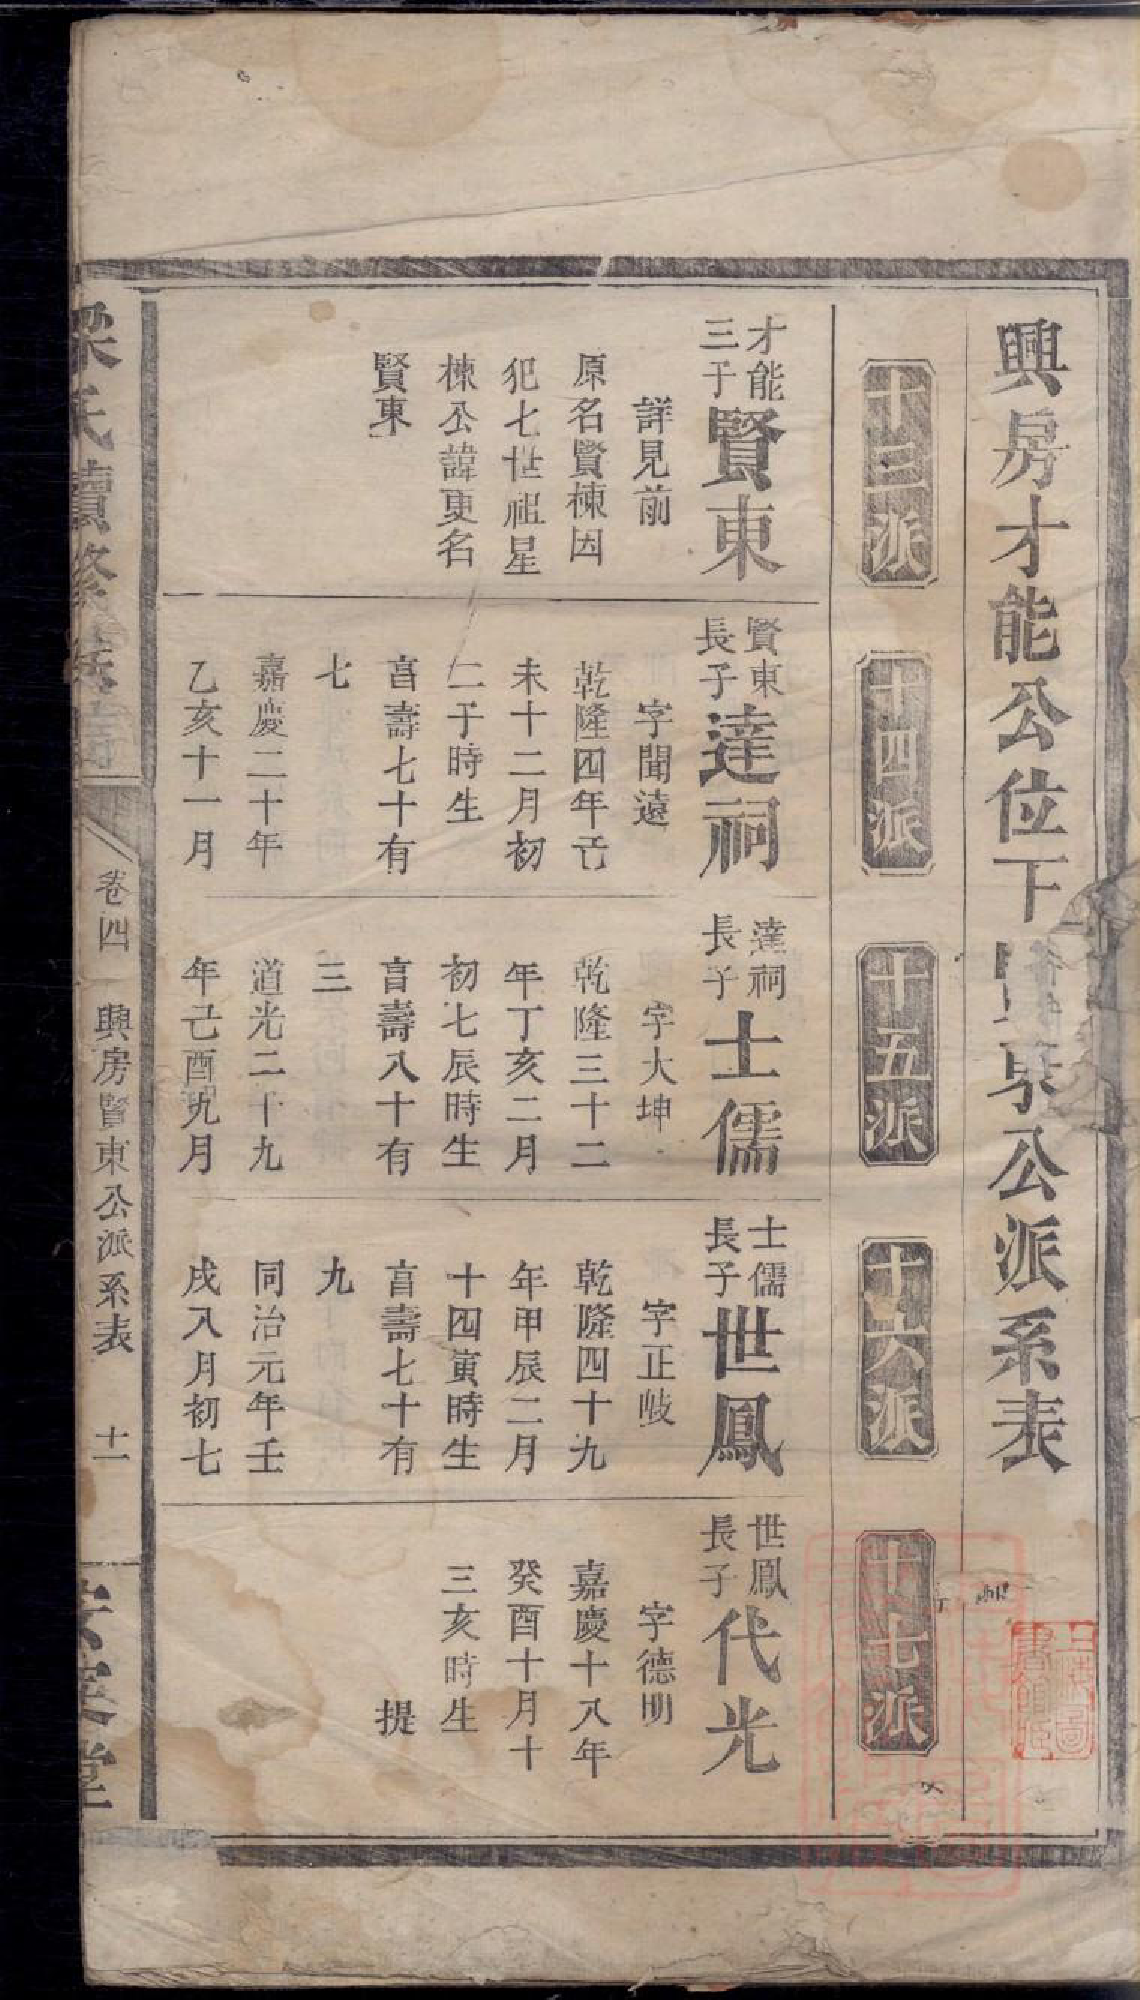 興房才能公位下賢東公派系表
十三派
才能
三子
賢東
詳見前
原名賢棟因
犯七世祖星
棟公諱更名
賢東
十四派
賢東
長子
達祠
字聞遠
乾隆四年己
未十二月初
二子時生
享壽七十有
七
嘉慶二十年
乙亥十一月
十五派
達祠
長子
士儒
字大坤
乾隆三十二
年丁亥二月
初七辰時生
享壽八十有
三
道光二十九
年己酉九月
十六派
士儒
長子
世鳳
字正岐
乾隆四十九
年甲辰二月
十四寅時生
享壽七十有
九
同治元年壬
戌八月初七
十七派
世鳳
長子
代光
字德明
嘉慶十八年
癸酉十月十
三亥時生
提
梁氏續修族
卷四
興房賢東公派系表
十一
安定堂